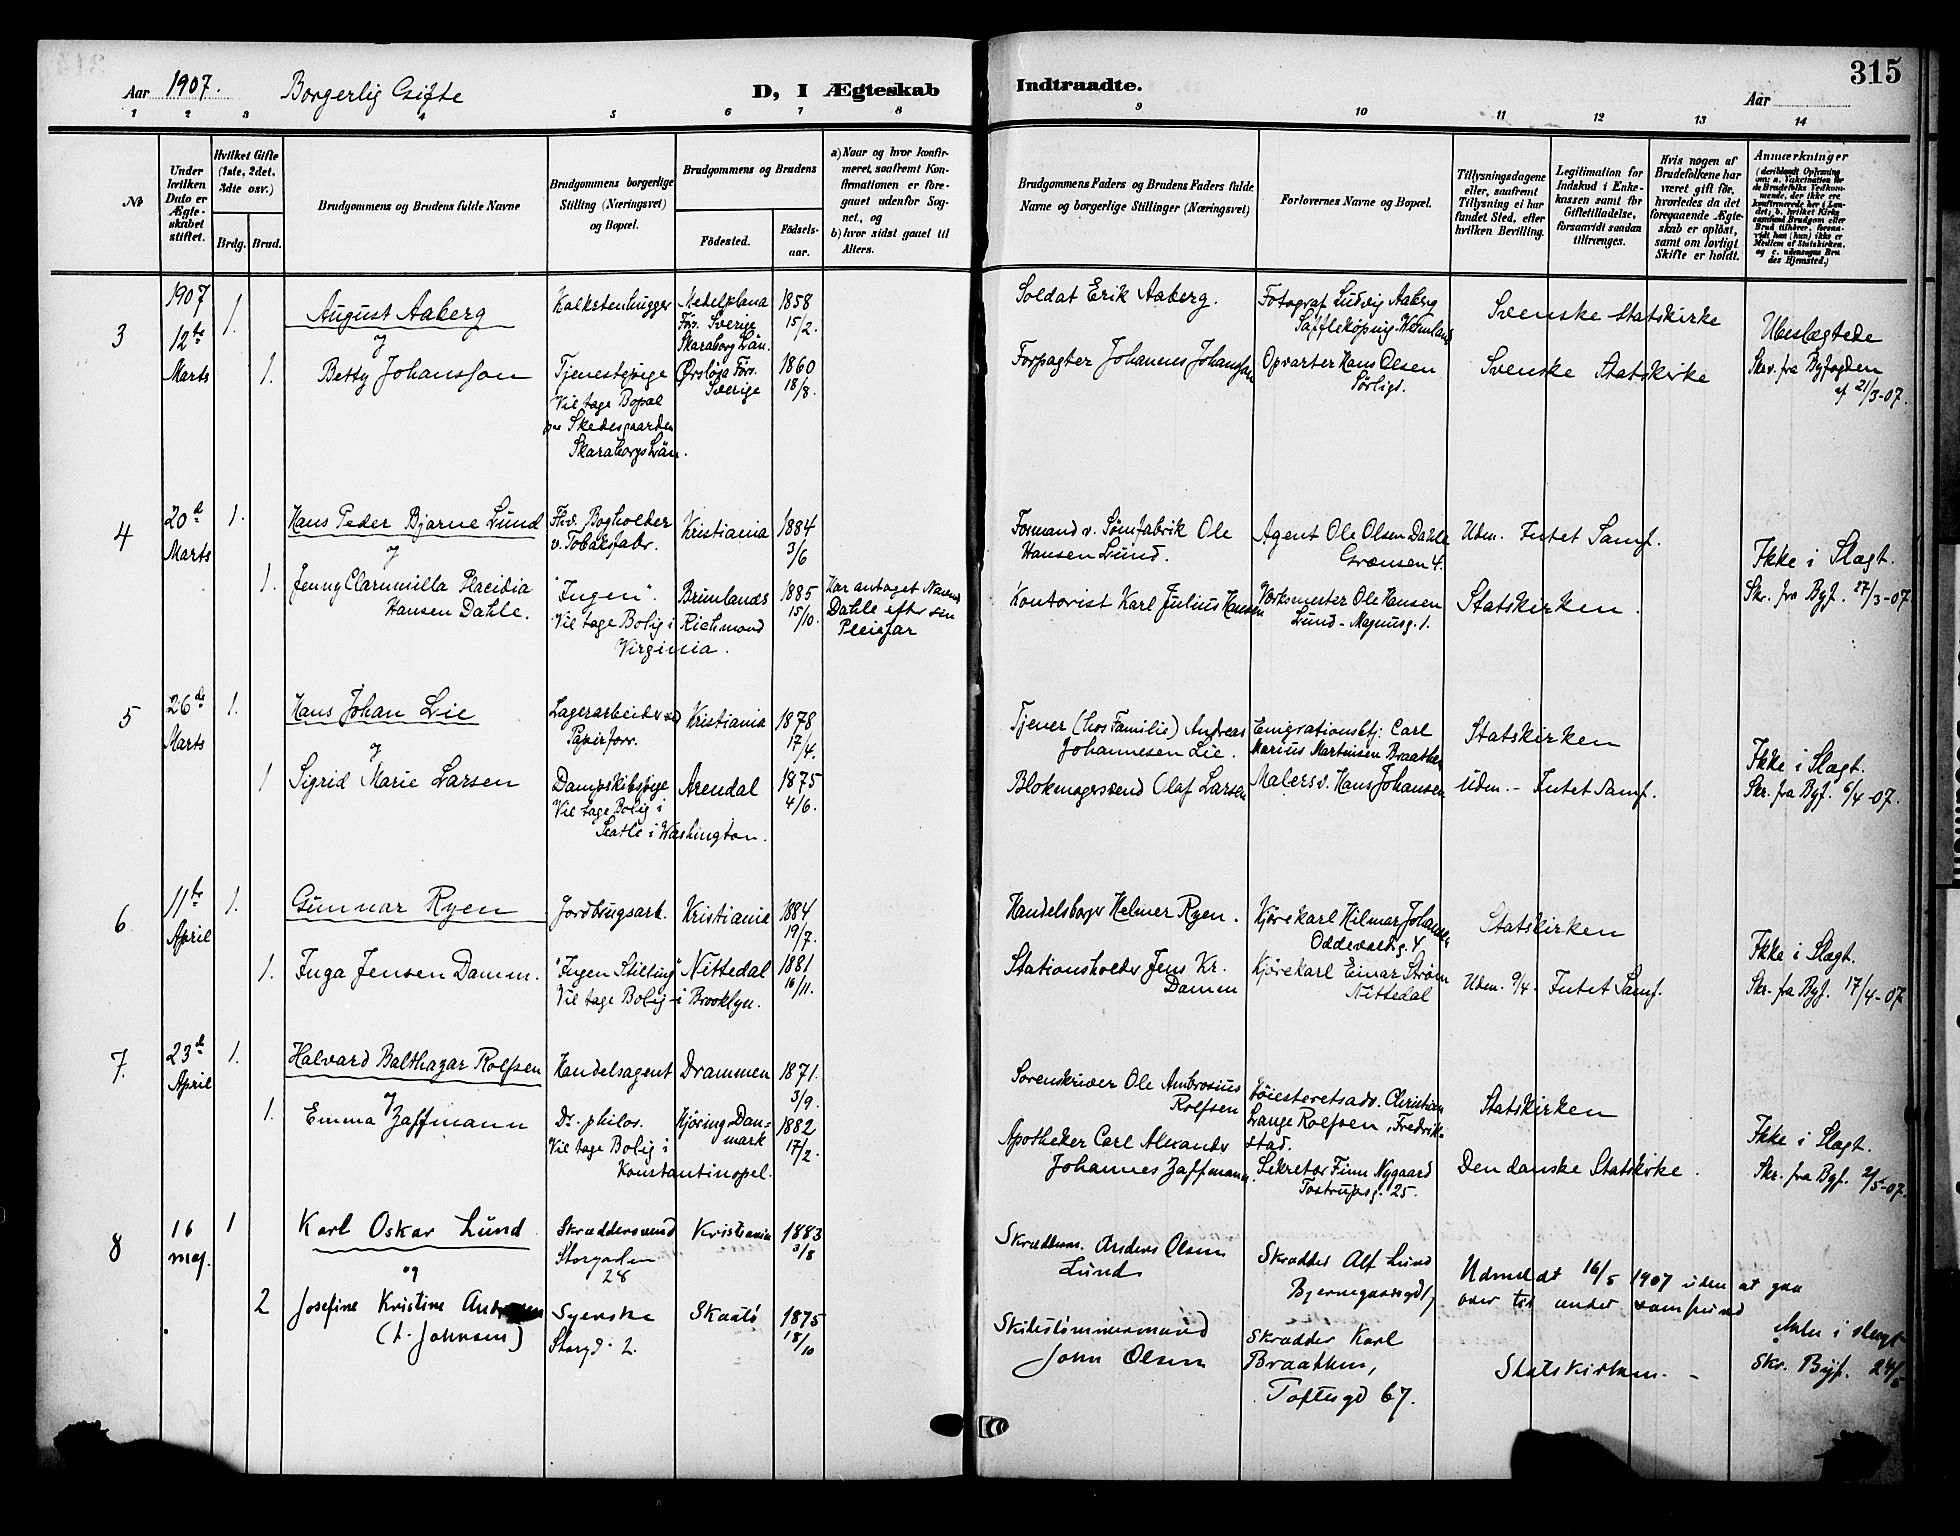 Aar 1907. Borgerlig Gifte D, I Ægteskab Indtraadte. Aar 315
1 2 3 4 5 6 7 8 9 10 11 12 13 14
No
Under hvilken Dato er Ægteskabet stiftet.
Hvilket Gifte (1ste, 2det, 3die osv.)
Brdg. Brud.
Brudgommens og Brudens fulde Navne
Brudgommens borgerlige Stilling (Næringsvei) og Bopæl.
Brudgommens og Brudens
Fødested. Fødsels-aar.
a) Naar og hvor konfirmeret, saafremt Konfirmationen er foregaaet udenfor Sognet, og
b) hvor sidst gaaet til Alters.
Brudgommens Faders og Brudens Faders fulde Navne og borgerlige Stillinger (Næringsvei)
Forlovernes Navne og Bopæl.
Tillysningsdagene eller, saafremt Tillysning ei har fundet Sted, efter hvilken Bevilling.
Legitimation for Indskud i Enkekassen samt for Giftetilladelse, forsaavidt saadan tiltrænges.
Hvis nogen af Brudefolkene har været gift før, hvorledes da det foregaaende Ægteskab er opløst, samt om lovligt Skifte er holdt.
Anmærkninger (deriblandt Oplysning om: a. Vakcination for de Brudefolks Vedkommende, der ikke ere konfirmerede her i Landet; b. hvilket Kirkesamfund Brudgom eller Brud tilhører, forsaavidt han (hun) ikke er Medlem af Statskirken, og c. udensogns Brudes Hjemsted.)
3
1907
12te Marts
1.
August Aaberg
Kalkstenhugger
Medelplana Förs. Sverige Skaraborg Län.
1858 15/2.
Soldat Erik Aaberg.
Fotograf Ludvig Aaberg
Saffleköping
Svenske Statskirke
Ubeslægtede
og
1.
Betty Johansson
Tjenestepige
Vil tage Bopæl
paa Skedesgaarden
Skaraborgs Län.
Förs. Sverige
1860 18/8.
Forpagter Johannes Johansson
Opvarter Hans Olsen
Svenske Statskirke
Skr. fra Byfogden
af 21/3-07.
4
20de Marts
1.
Hans Peder Bjarne Lund
Fhv. Bogholder
v. Tobaksfabr.
Kristiania
1884 3/6
Formand v. Sømfabrik Ole
Hansen Lund.
Agent Ole Olsen Dahle
Grænsen 4.
Udm. Intet Samf.
Ikke i Slægt.
og
1.
Jenny Clarumilla Placidia
Hansen Dahle.
"Ingen".
Vil tage Bolig i Richmond
Virginia.
Brunlanæs
1885 15/10.
Har antaget Navnet
Dahle efter sin
Pleiefar
Kontorist Karl Julius Hansen
Værksmester Ole Hansen
Lund - Magnusg. 1.
Statskirken.
Skr. fra Byf. 27/3-07.
5
26de Marts
1.
Hans Johan Lie
Lagerarbeider ved
Papirforr.
Kristiania
1878 17/4.
Tjener (hos Familie) Andreas
Johannesen Lie.
Emigrationsbtj. Carl
Marius Martinsen Braathen
Statskirken
Ikke i Slægt.
og
1
Sigrid Marie Larsen
Dampskibspige
Vil tage Bolig i
Seatle i Washington.
Arendal
1875 4/6.
Blokmagersvend Olaf Larsen
Malersv. Hans Johansen
Udm. - Intet Samf.
Skr. fra Byf. 6/4-07.
6
11te April
1.
Gunnar Ryen
Jordbrugsarb.
Kristiania
1884 19/7.
Handelsborger Helmer Ryen.
Kjørekarl Hilmar Johansen
Oddevaldg. 4
Statskirken
Ikke i Slægt.
1.
Inga Jensen Damm.
"Ingen Stilling"
Vil tage Bolig i Brooklyn.
Nittedal
1881 16/11.
Stationsholder Jens Kr.
Damm
Kjørekarl Einar Strøm
Nittedal
Udm. 9/4. Intet Samf.
Skr. fra Byf. 17/4-07
7.
23de April
1.
Halvard Balthazar Rolfsen
Handelsagent
Drammen
1871. 3/9.
Sorenskriver Ole Ambrosius
Rolfsen
Høiesteretsadv. Christian
Lange Rolfsen, Fredrikstad.
Statskirken
Ikke i Slægt.
og
1.
Emma Zaffmann
Dr. philos.
Vil tage Bolig i
Konstantinopel.
Hjøring Danmark
1882 17/2.
Apotheker Carl Alexander
Johannes Zaffmann.
Sekretær Finn Nygaard
Tostrupsg. 25.
Den danske Statskirke.
Skr. fra Byf. 2/5-07.
8
16 maj.
1
Karl Oskar Lund
Skræddersvend
Storgaden
28
Kristiania
1883 3/8
Skræddserm. Anders Olsen
Lund
Skrædder Alf Lund
Udmeldt 16/5 1907 uden at gaa
over til under samfund
og
2
Josefine Kristine
(f. Johnsen)
Syerske
Storgd. 2.
Skaatø
1875 18/10
Skibstømmermand
John Olsen
Skrædder Karl
Braathen,
Toftesgd 67.
Statskirken. -
i slægt
Skr. Byf. 24/5